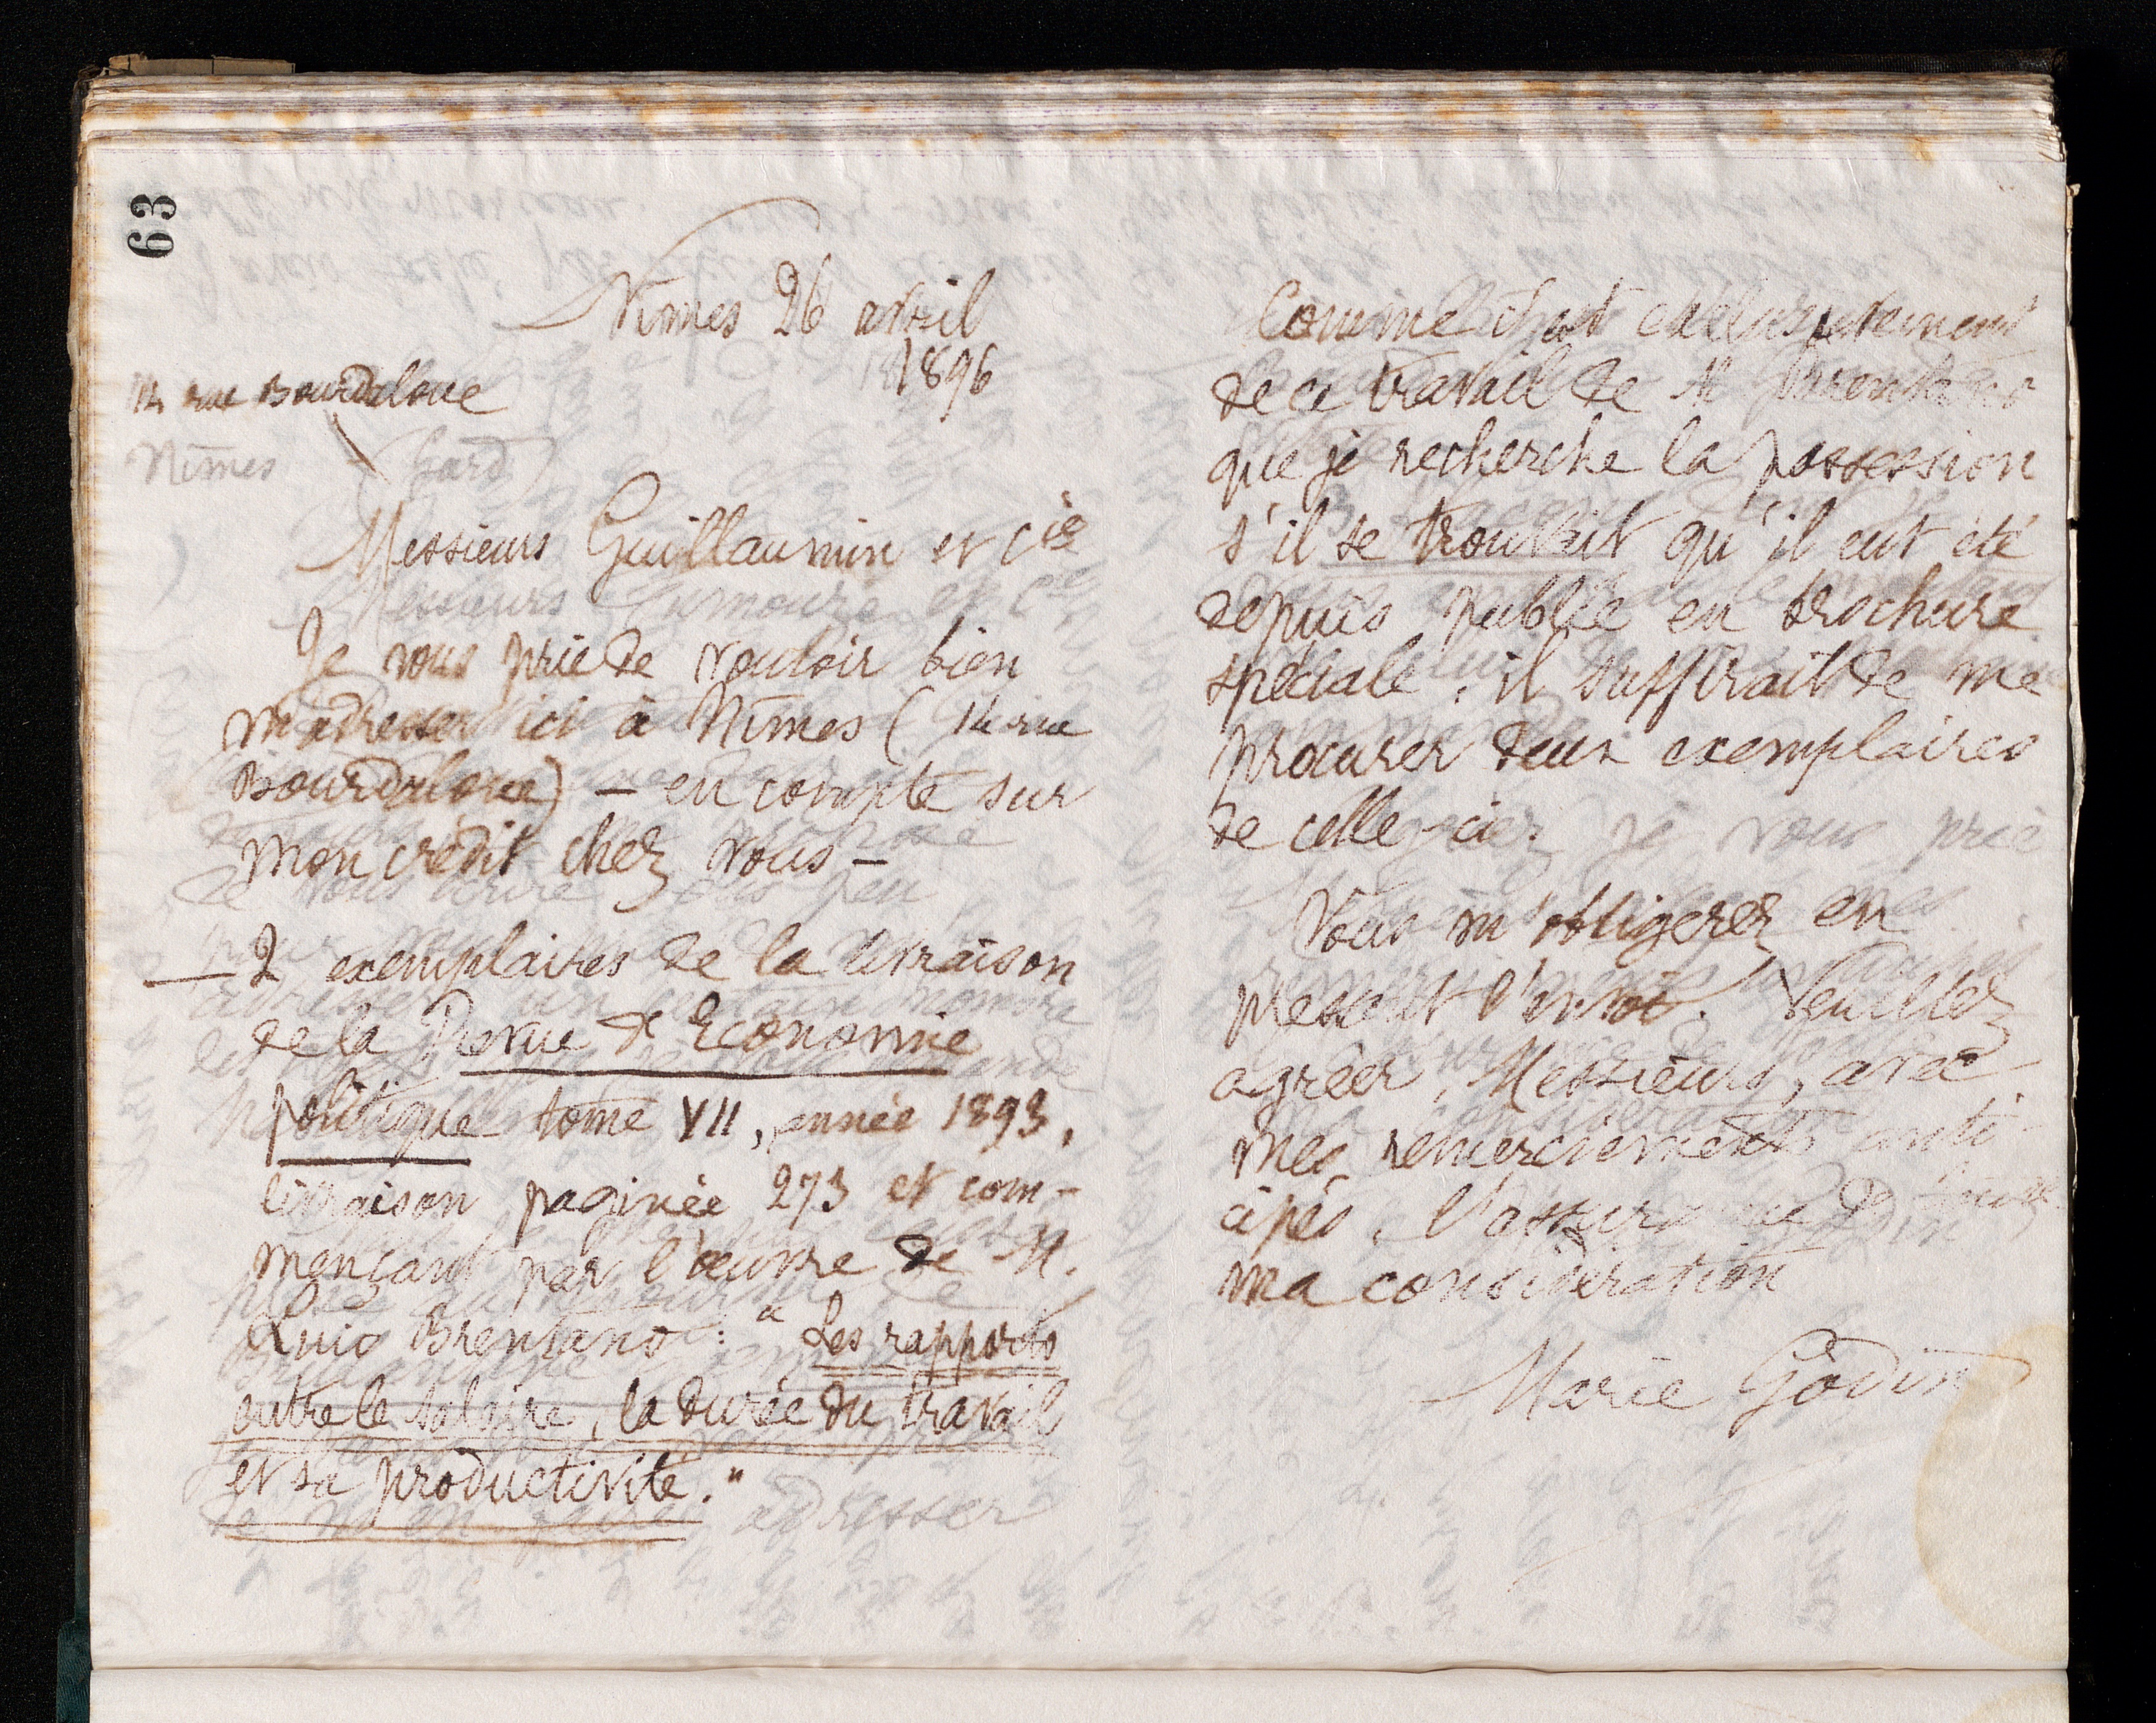 63
Nîmes 26 avril
1896
14 rue Bourdaloue
Nîmes (Gard)
Messieurs Guillaumin et Cie
Je vous prie de vouloir bien
m'adresser ici à Nîmes (14 rue
Bourdaloue) – en compte sur
mon crédit chez vous –
— 2 exemplaires de la livraison
de la Revue d'Economie
politique tome VII, année 1893,
livraison paginée 273 et com-
mençant par l'œuvre de M.
Luio Brentano : "Les rapports
entre le salaire, la durée du travail
et sa productivité."
Comme c'est exclusivement
de ce travail de M Brentano
que je recherche la possession
s'il se trouvait qu'il eut été
depuis publié en brochure
spéciale, il suffirait de me
procurer deux exemplaires
de celle-ci.
Vous m'obligerez en
pressant l'envoi. Veuillez
agréer, Messieurs, avec
mes remerciements anti-
cipés, l'assurance de toute
ma considération
Marie Godin